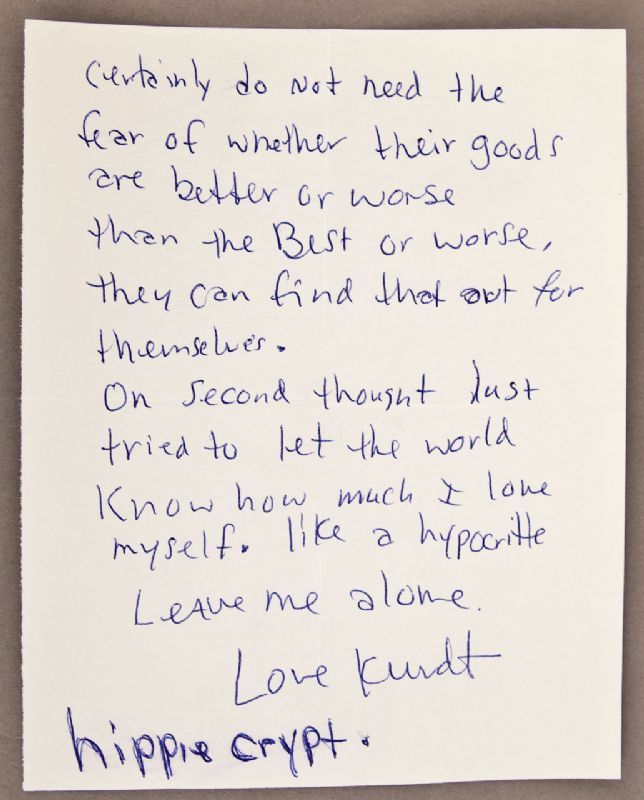 certainly do not need the
fear of whether their goods
are better or worse
than the Best or worse,
they can find that out for
themselves.
On second thought Just
tried to let the world
Know how much I love
myself. like a hypocritte
Leave me alone.
Love Kurdt
hippie crypt.